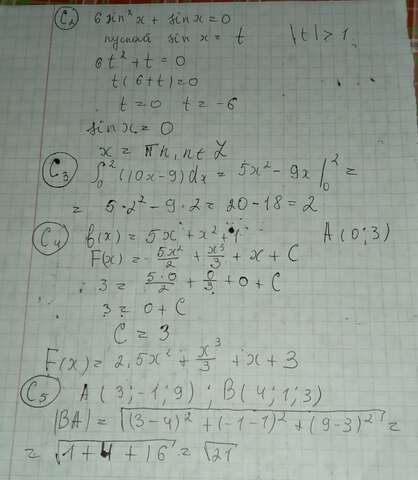 C₂ 6 sin²x + sin x = 0
пускай sin x = t |t| > 1
6t² + t = 0
t(6+t) = 0
t = 0 t = -6
sin x = 0
x = πn, n ∈ Z
C₃ ∫₀² (10x-9)dx = 5x² - 9x |₀² =
= 5·2² - 9·2 = 20 - 18 = 2
C₄ f(x) = 5x + x² + 1 A(0;3)
F(x) = 5x²/2 + x³/3 + x + C
3 = 5·0/2 + 0/3 + 0 + C
3 = 0 + C
C = 3
F(x) = 2,5x² + x³/3 + x + 3
C₅ A(3;-1;9); B(4;1;3)
|BA| = √((3-4)² + (-1-1)² + (9-3)²) =
= √(1+4+16) = √21